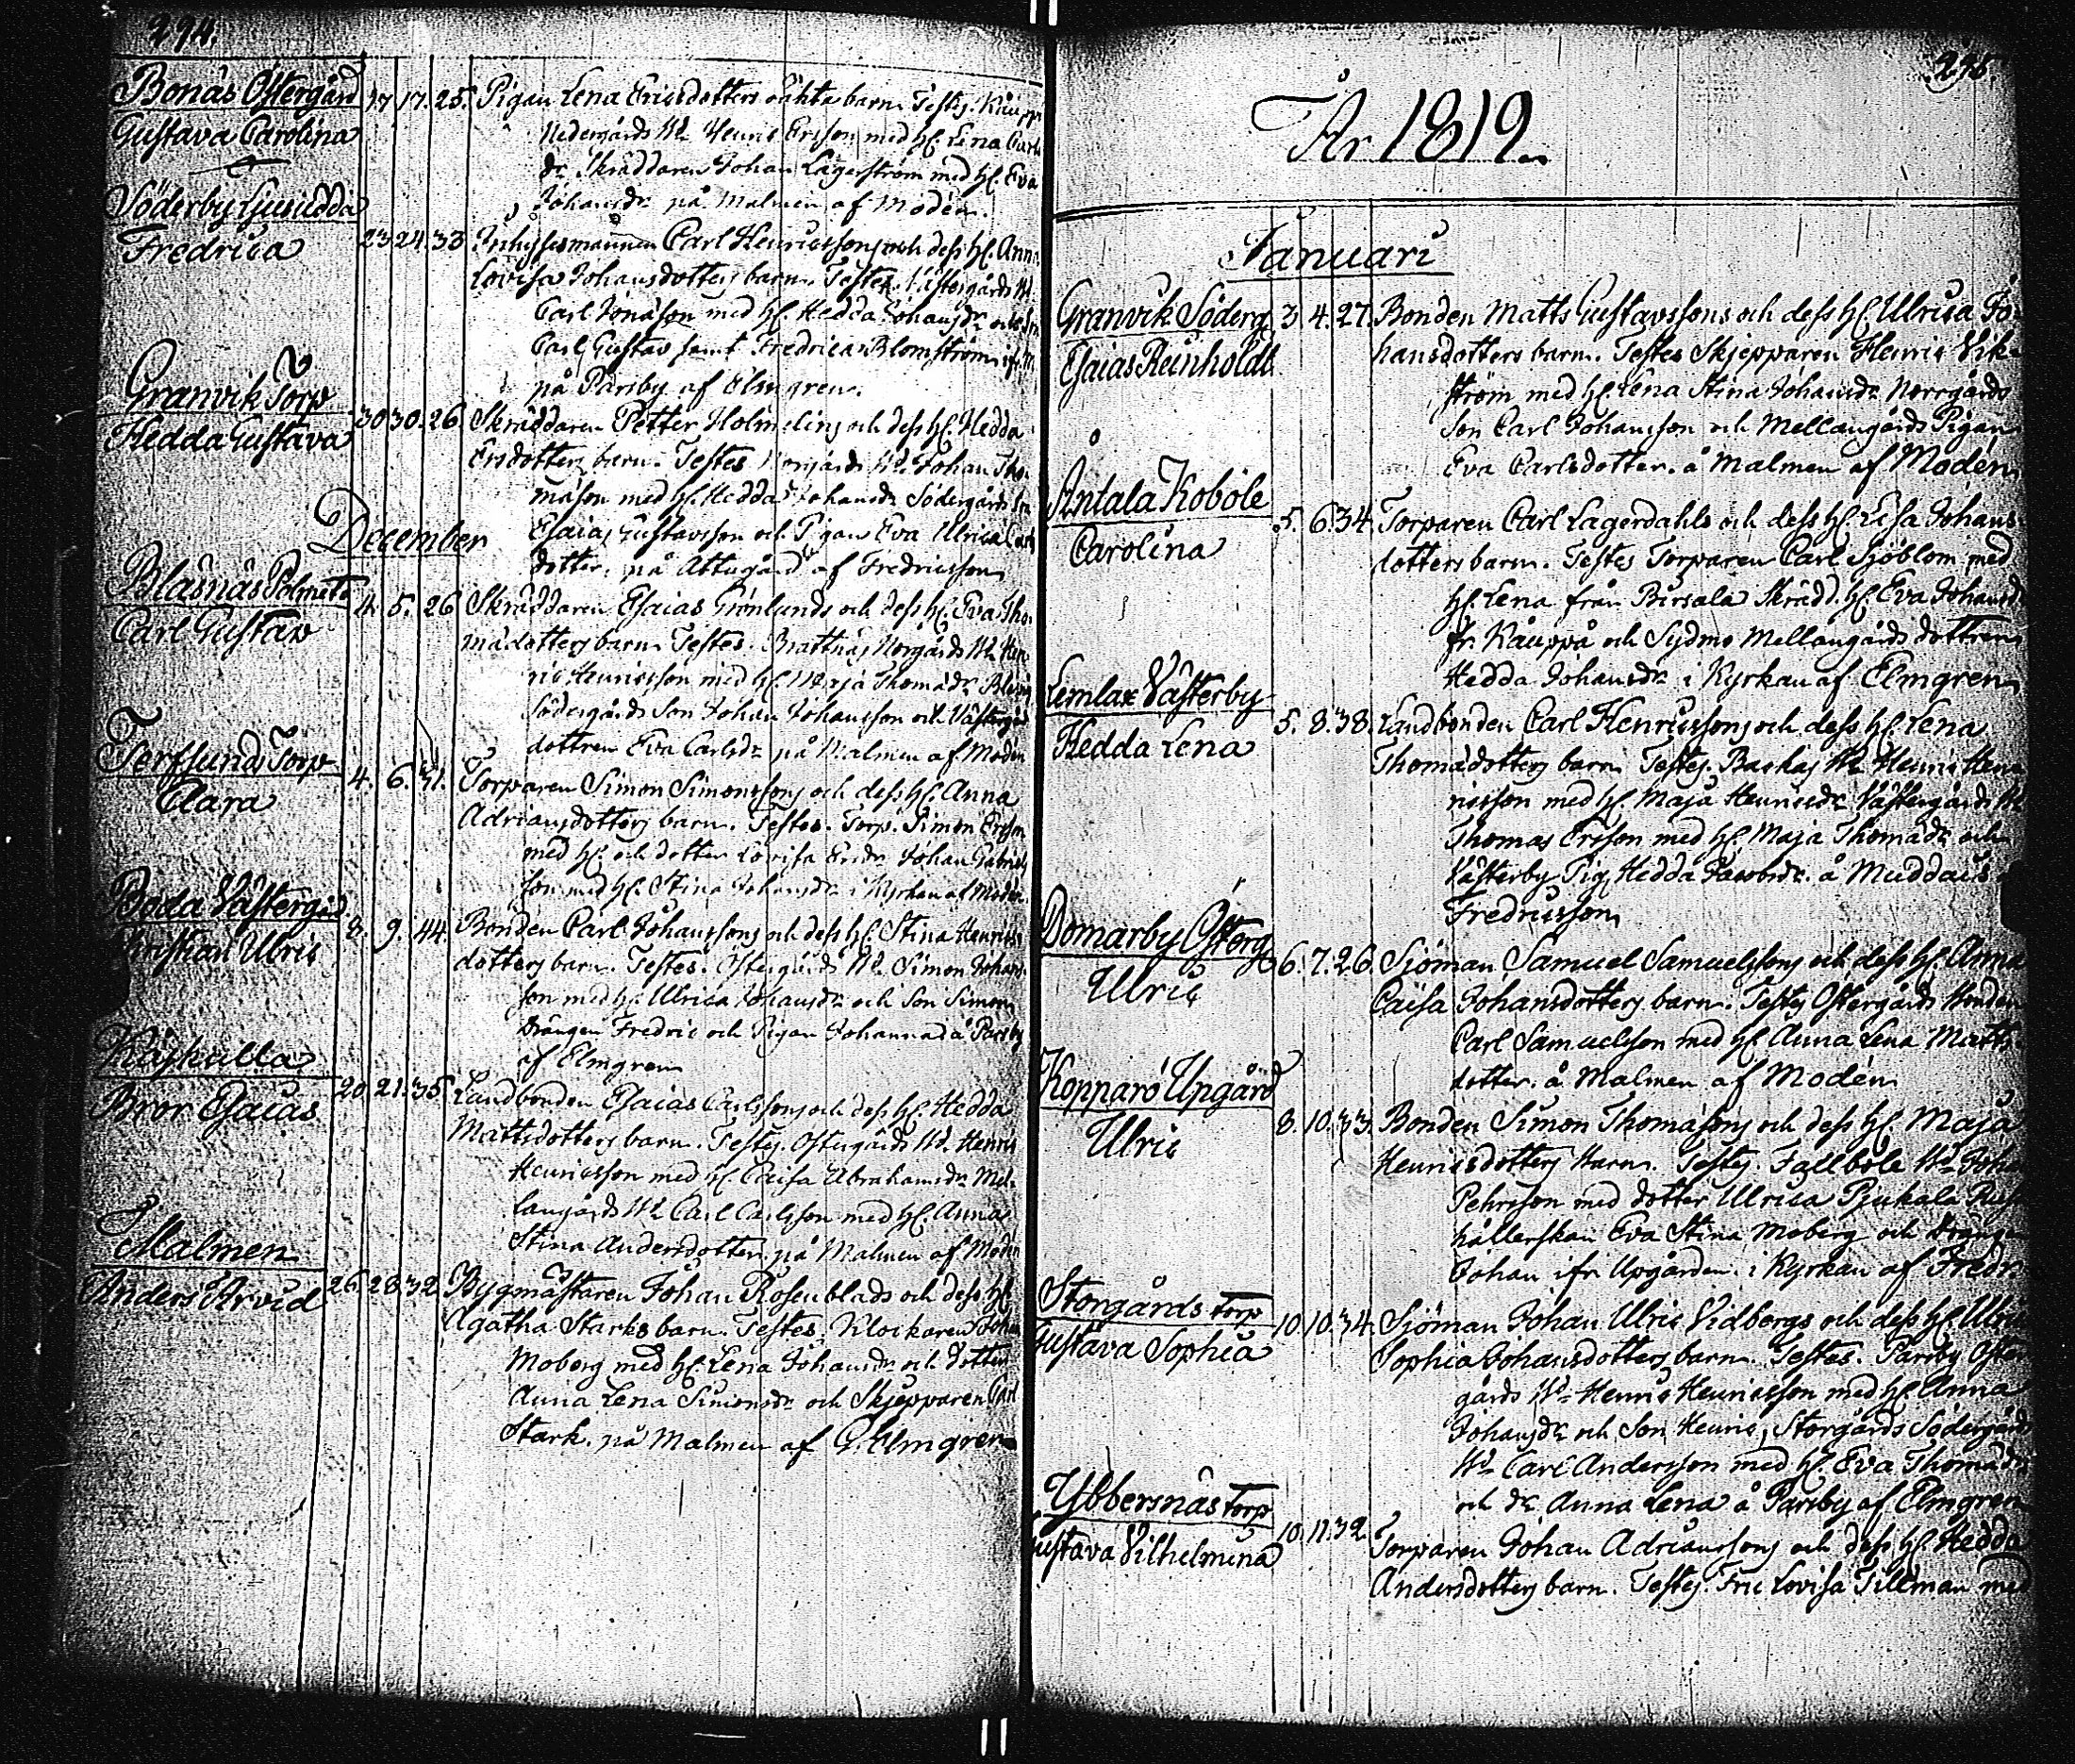 294.
Bonäs Östergård 17. 17. 25. Pigan Lena Ericsdotters oächta barn. Testes. Kåuppo
Gustava Carolina Nedergårds Wd Henric Ersson med h. Lena Carls
dr Skräddaren Johan Lagerström med h. Eva
Johansdr på Malmen af Modén.
Söderby Ljusudda
Fredrica 23. 24. 33. Inhysesmannen Carl Henricssons och dess h. Anna
Lovisa Johansdotters barn. Testes. Västergårds Wd
Carl Jonasson med h. Hedda Johansdr och
Carl Gustav samt Fredrica Blomström
på Parsby af Elmgren.
Granvik Torp
Hedda Gustava 30. 30. 26. Skräddaren Petter Holm och dess h. Hedda
Ersdotters barn. Testes Norgårds Wd. Johan Tho-
masson med h. Hedda Johansdr Södergårds Son
Esaias Gustavsson och Pigan Eva Ulrica Carls
dotter, på Attugård af Fredricsson
December
Blåsnäs
Carl Gustaw 4. 5. 26 Skräddaren Esaias Grönlunds och dess h. Eva Tho-
madotters barn. Testes. Brattnäs Norgårds Wd Hen-
ric Henricsson med h. Marja Thomadr
Södergårds Son Johan Johansson och Västergårds
dottren Eva Carlsdr på Malmen af Modén
Terfsunds Torp
Clara 4. 6. 31. Torparen Simon Simonssons och dess h. Anna
Adriansdotters barn. Testes. Torp. Simon Ersson
med h. och dotter Lovisa Ersdr Johan Gabriels
son med h. Stina Johansdr i Kyrkan af Modén.
Boda Västergård
Kristian Ulric 8. 9. 44. Bonden Carl Johanssons och dess h. Stina Henrics
dotters barn. Testes. Östergårds Wd Simon Johans
son med h. Ulrica Johansdr och Son Simon,
Drängen Fredric och Pigan Johanna å Parsby
af Elmgren
Käskulla
Bror Esaias 20. 21. 35. Landbonden Esaias Carlssons och dess h. Hedda
Mattsdotters barn. Testes. Östergårds Wd. Henric
Henricsson med h. Caisa Abrahamsdr Mel-
langårds Wd Carl Carlsson med h. Anna
Stina Andersdotter på Malmen af Modén
Malmen
Anders Arvid 26. 28. 32. Bygmästaren Johan Rosenblads och dess h.
Agatha Starks barn. Testes. Klockaren Johan
Moberg med h. Lena Johansdr och dotter
Anna Lena Simonsdr och Skjepparen Carl
Stark. på Malmen af G. Elmgren
295.
År 1819.
Januari
Granvik Söderg. 3. 4. 27. Bonden Matts Gustavssons och dess h. Ulrica Jo-
Esaias Reinholdt. hansdotters barn. Testes Skjepparen Henric Vik-
ström med h. Lena Stina Johansdr Norrgårds
Son Carl Johansson och Mellangårds Pigan
Eva Carlsdotter. å Malmen af Modén
Antala Koböle
Carolina 5. 6. 34. Torparen Carl Lagerdahls och dess h. Lisa Johans-
dotters barn. Testes Torparen Carl Sjöblom med
h. Lena från Birsala Skrädd. h. Eva Johansdr
fr. Kåuppå och Sydmo Mellangårds dottren
Hedda Johansdr i Kyrkan af Elmgren
Lemlax Västerby
Hedda Lena 5. 8. 38. Landbonden Carl Henricssons och dess h. Lena
Thomädotters barn. Testes. Backas Wd Henric Hen-
ricsson med h. Maja Henricsdr Västergårds Wd
Thomas Ersson med h. Maja Thomadr och
Västerby Pig. Hedda Jacobsdr. å Muddais
Fredricsson
Domarby Österg.
Ulric 6. 7. 26. Sjöman Samuel Samuelssons och dess h. Anna
Caisa Johansdotters barn. Testes Östergårds Bonden
Carl Samuelsson med h. Anna Lena Matts
dotter. å Malmen af Modén
Kopparö Upgård
Ulric 8. 10. 33. Bonden Simon Thomassons och dess h. Maja
Henricsdotters Barn. Testes. Fallböle Wd Johan
Pehrsson med dotter Ulrica Pjukala Rust
hållerskan Eva Stina Moberg och Drängen
Johan ifr. Upgården. i Kyrkan af Fredr
Storgårds torp
Gustava Sophia 10. 10. 34. Sjöman Johan Ulric Vidbergs och dess h. Ulrica
Sophia Johansdotters barn. Testes. Parsby Öster
gårds Wd Henric Henricsson med h. Anna
Johansdr och Son Henric, Storgårds Södergårds
Wd Carl Andersson med h. Eva Thomadr
och dr. Anna Lena å Parsby af Elmgren
Ybbersnäs torp
Gustava Vilhelmina 10. 11. 32. Torparen Johan Adrianssons och dess h. Hedda
Andersdotters barn. Testes. Fru Lovisa Tillman med